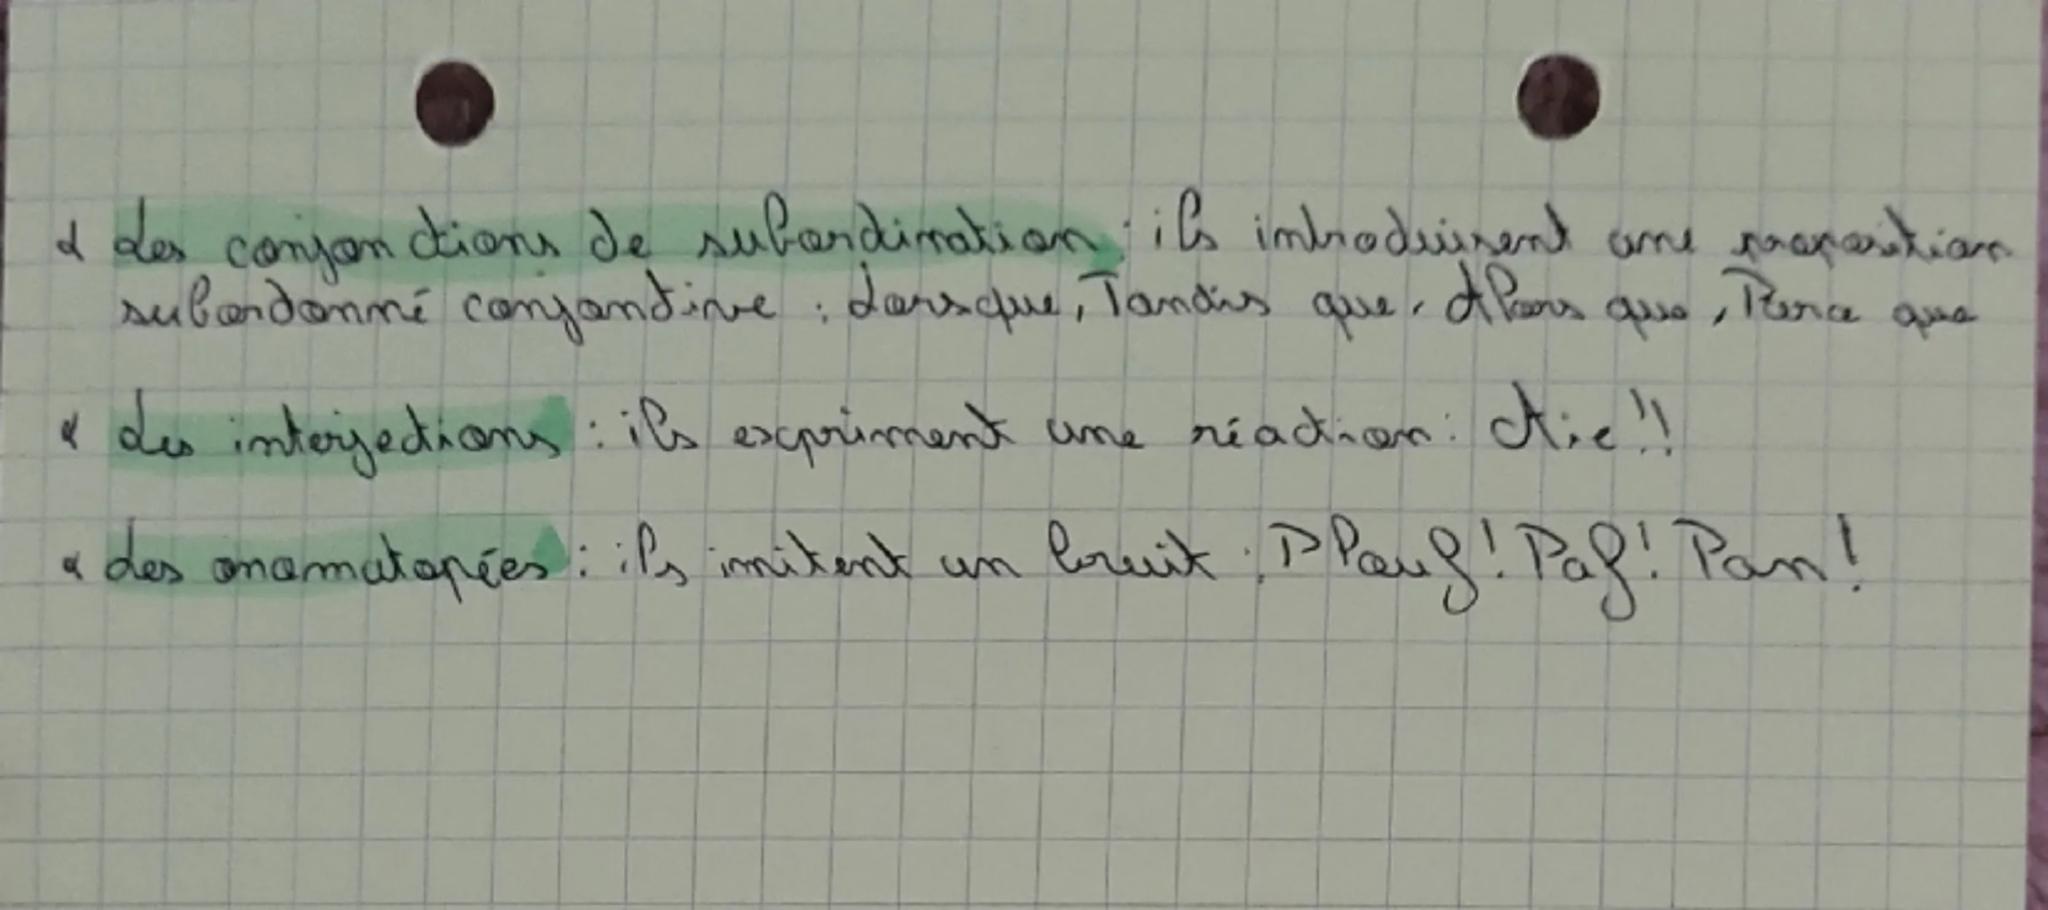 ∝ des conjonctions de subordination : ils introduisent une proposition
subordonné conjonctive : Lorsque, Tandis que, Alors que, Parce que
∝ des interjections : ils expriment une réaction : Aie !!
∝ des onomatopées : ils imitent un bruit : Plouf ! Paf ! Pan !